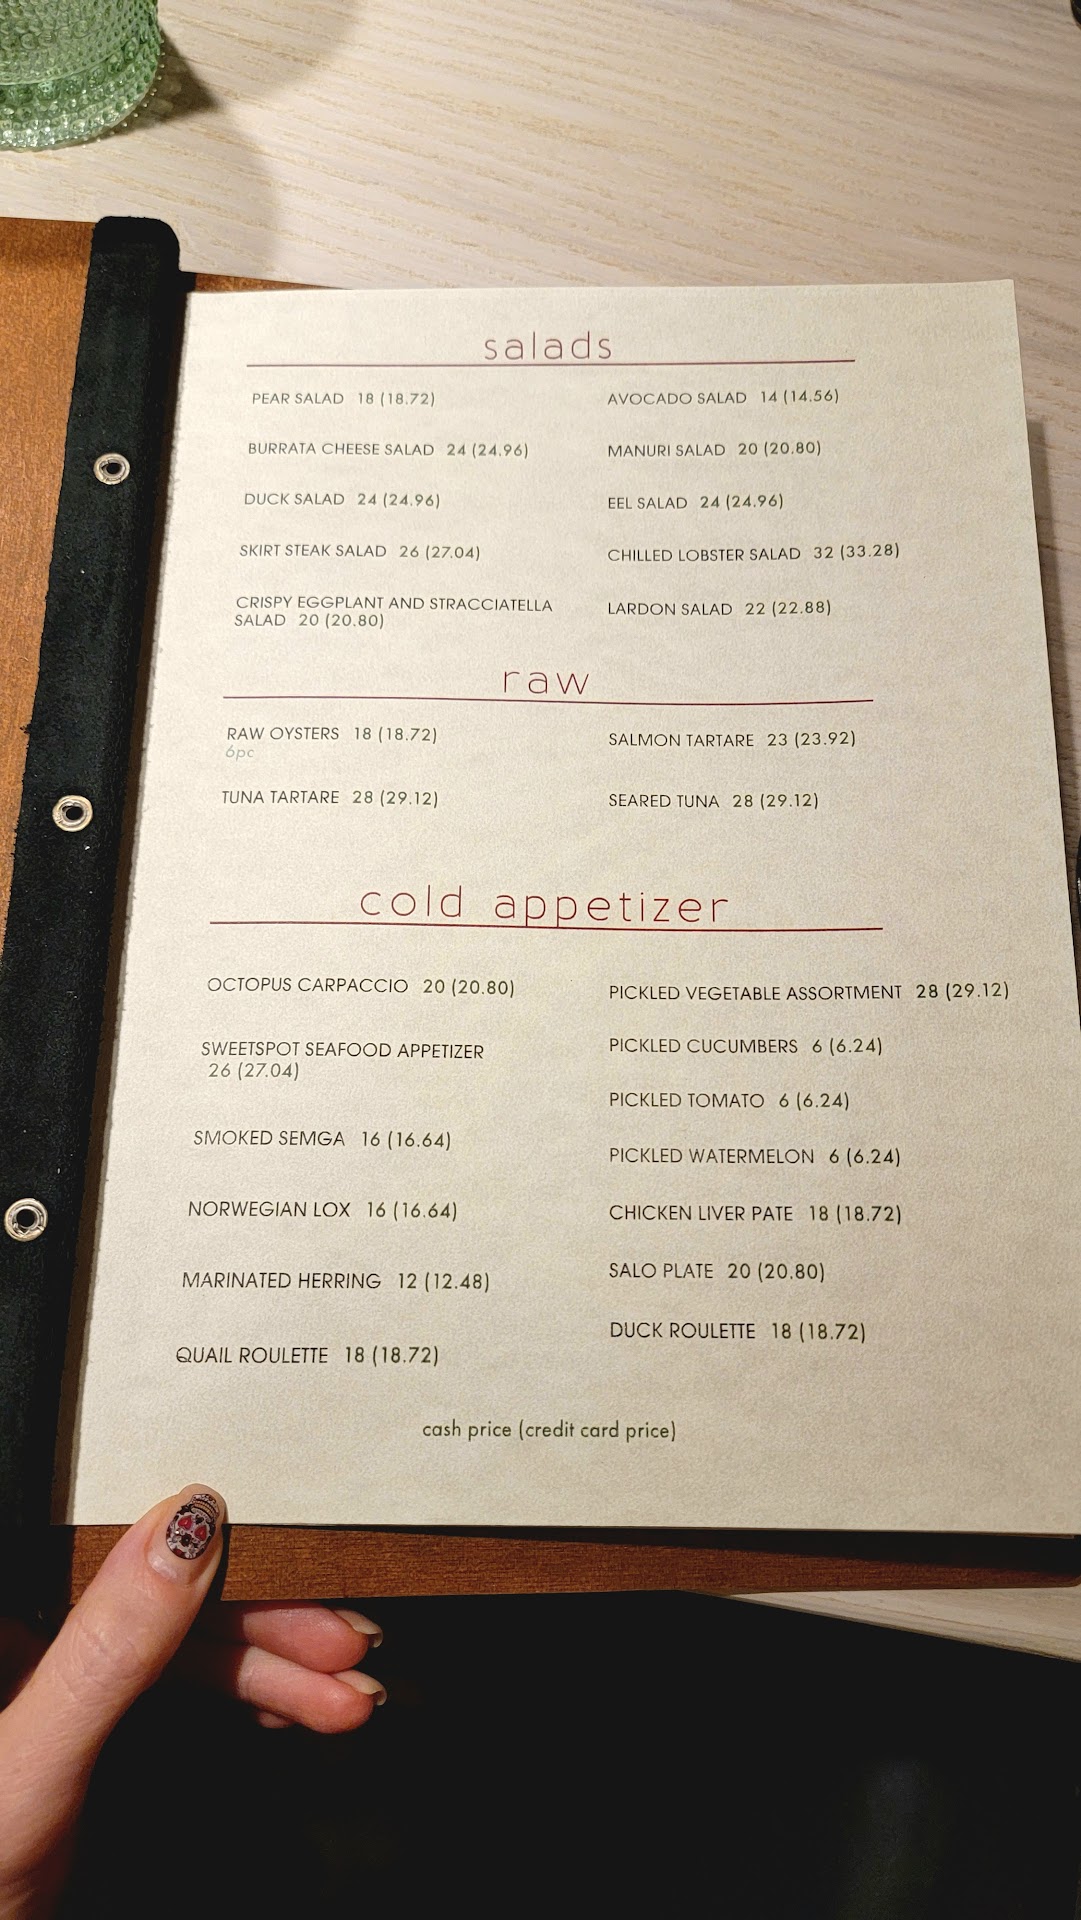 salads
PEAR SALAD 18 (18.72)
BURRATA CHEESE SALAD 24 (24.96)
DUCK SALAD 24 (24.96)
SKIRT STEAK SALAD 26 (27.04)
CRISPY EGGPLANT AND STRACCIATELLA
SALAD 20 (20.80)
AVOCADO SALAD 14 (14.56)
MANURI SALAD 20 (20.80)
EEL SALAD 24 (24.96)
CHILLED LOBSTER SALAD 32 (33.28)
LARDON SALAD 22 (22.88)
raw
RAW OYSTERS 18 (18.72)
6pc
TUNA TARTARE 28 (29.12)
SALMON TARTARE 23 (23.92)
SEARED TUNA 28 (29.12)
cold appetizer
OCTOPUS CARPACCIO 20 (20.80)
SWEETSPOT SEAFOOD APPETIZER
26 (27.04)
SMOKED SEMGA 16 (16.64)
NORWEGIAN LOX 16 (16.64)
MARINATED HERRING 12 (12.48)
QUAIL ROULETTE 18 (18.72)
PICKLED VEGETABLE ASSORTMENT 28 (29.12)
PICKLED CUCUMBERS 6 (6.24)
PICKLED TOMATO 6 (6.24)
PICKLED WATERMELON 6 (6.24)
CHICKEN LIVER PATE 18 (18.72)
SALO PLATE 20 (20.80)
DUCK ROULETTE 18 (18.72)
cash price (credit card price)